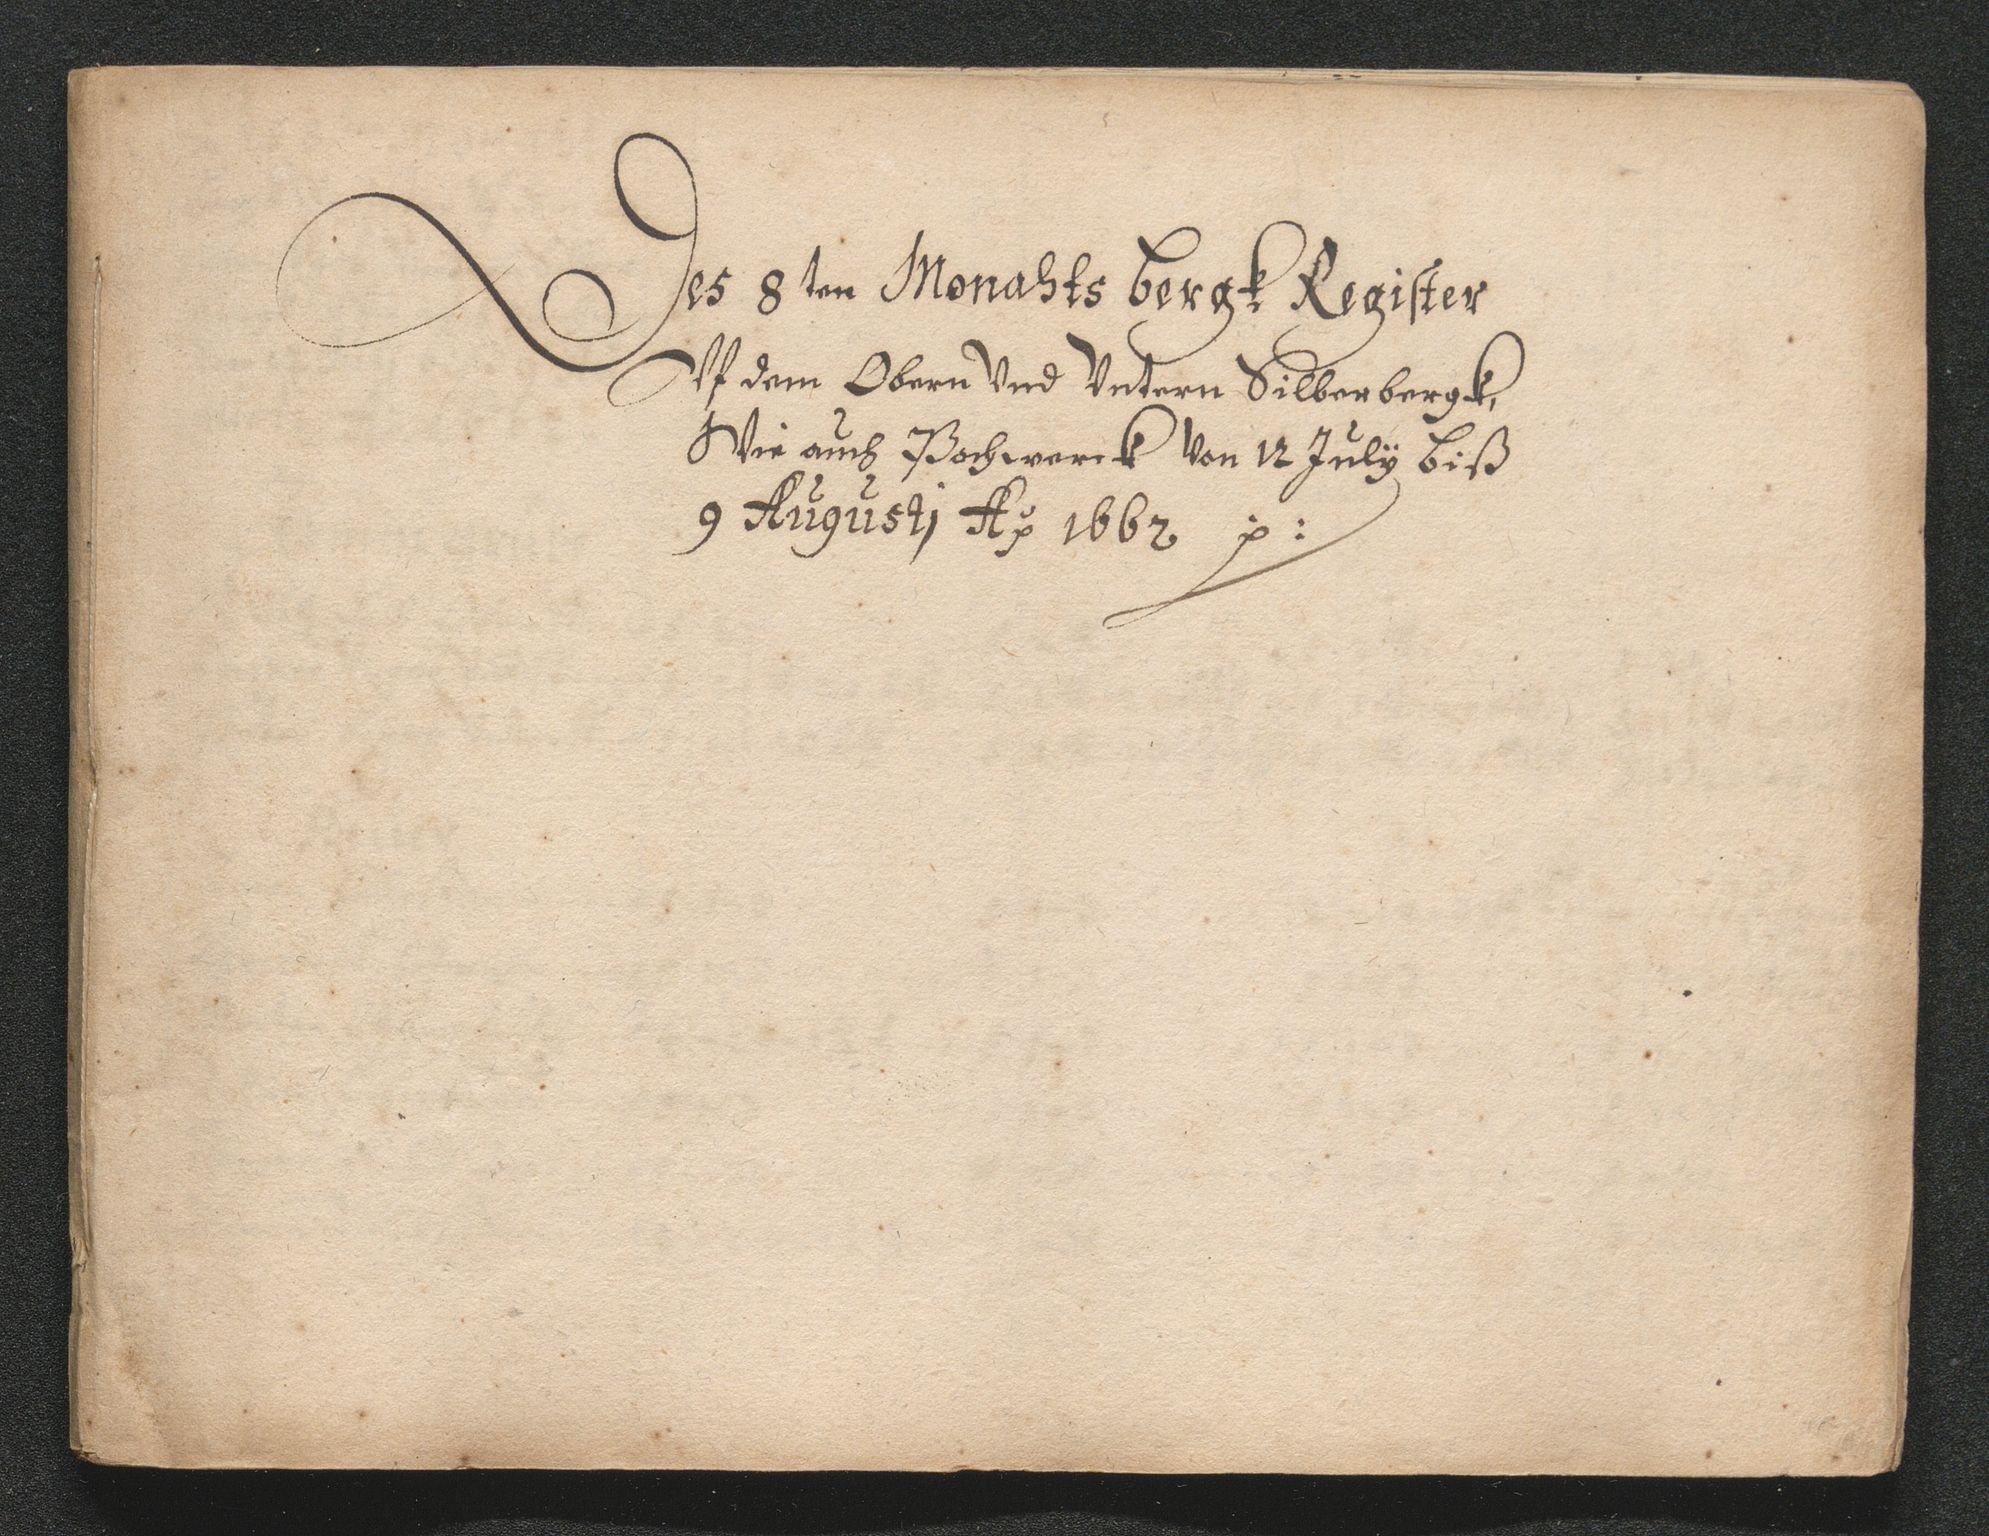 Des 8ten Monahts bergk Register
Uf dem Obern Vnd Vntern Silberbergk,
Wie auch Pochwerck Von 12 July biß
9 Augustj Aō 1662 p: